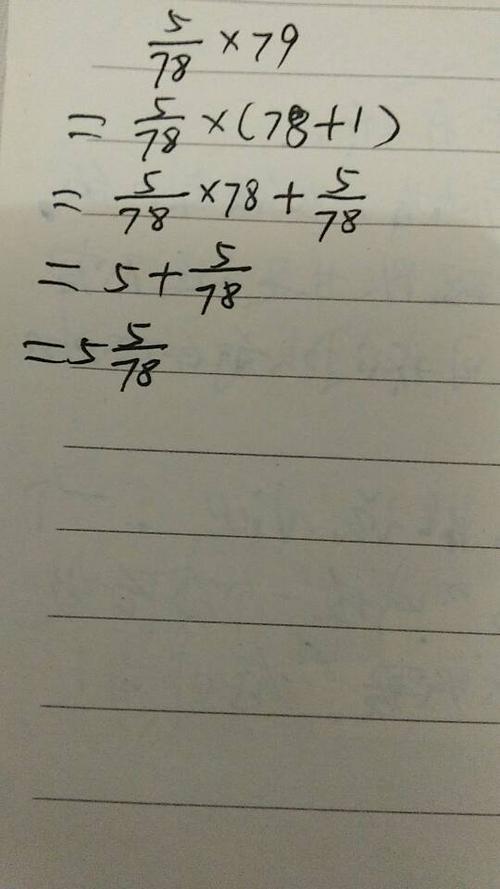 5/78 × 79
= 5/78 × (78 + 1)
= 5/78 × 78 + 5/78
= 5 + 5/78
= 5 5/78